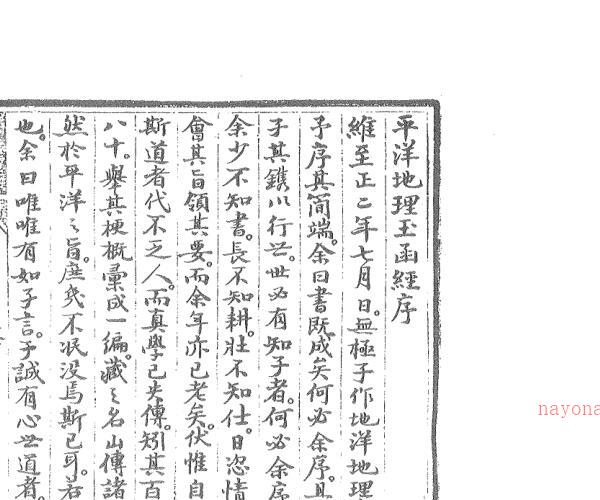 平洋地理玉函經序
維至正二年七月日。無極子作地洋地理
予序其簡端。余曰書既成矣何必余序。且
子其鐫以行世。世必有知子者。何必余序
余少不知書。長不知耕壯不知仕。日恣情
會其旨領其要。而余年亦已老矣。伏惟自
斯道者代不乏人。而真學已失傳。矧其百
八十。舉其梗概彙成一編。藏之名山傳諸
然於平洋之旨。庶幾不泯没焉斯已耳。若
也。余曰唯唯有如子言。予誠有心世道者。
nayona